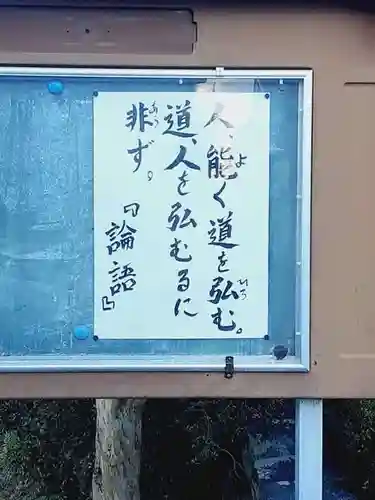 人、能く道を弘む。
道、人を弘むるに
非ず。
『論語』